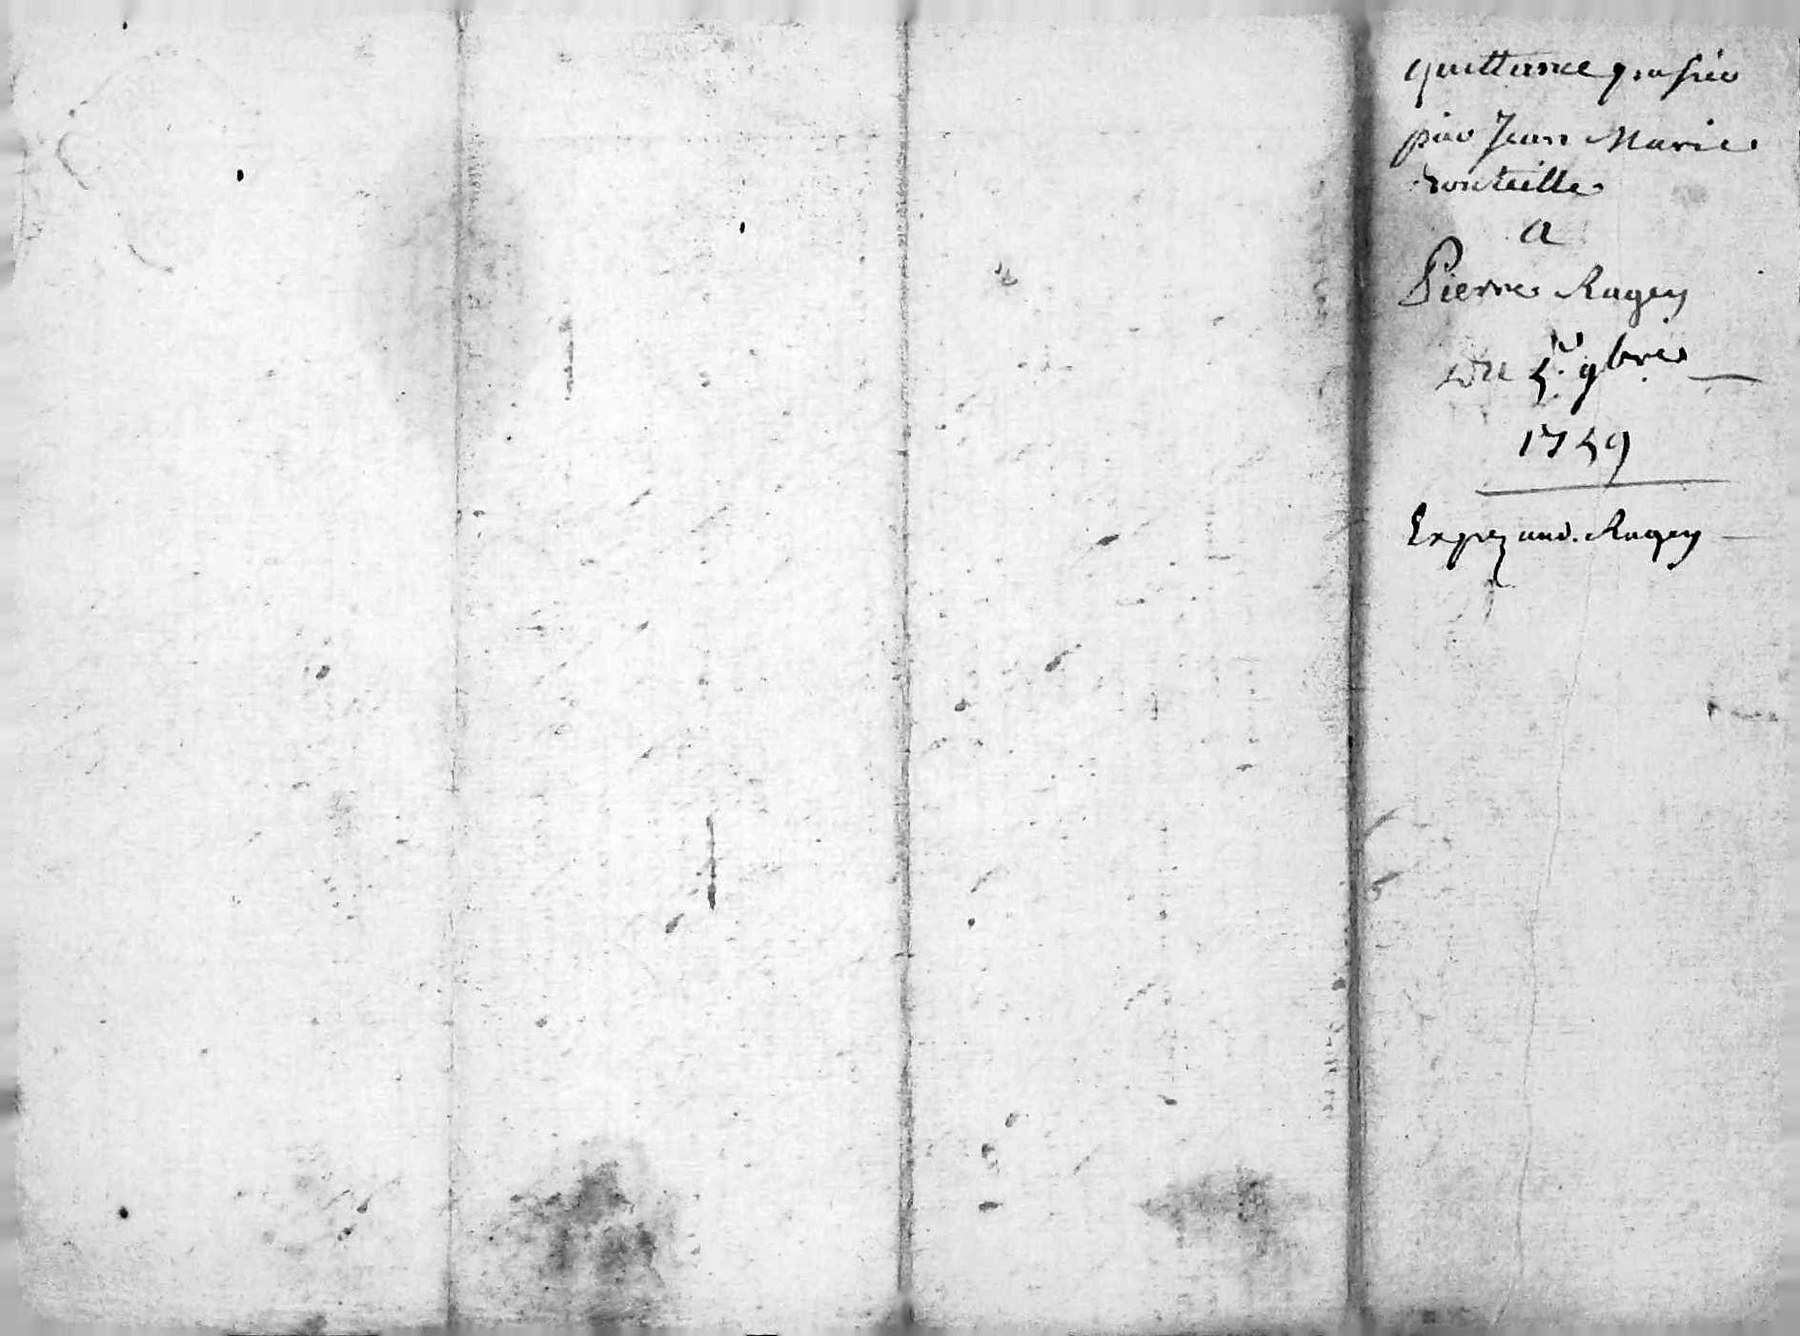 quittance passée
par Jean Marie
bouteille
a
Pierre Ragey
du 5e 9bre
1759
Expez aud. Ragey